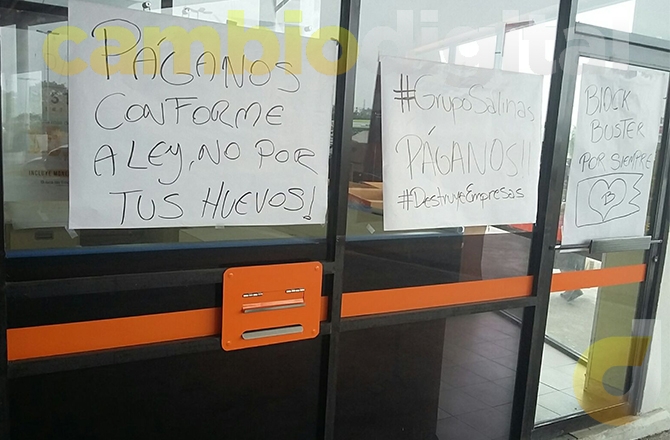 cambiodigital
PÁGANOS
CONFORME
A LEY, NO POR
TUS HUEVOS!
#GrupoSalinas
PÁGANOS!!
#DestruyeEmpresas
BLOCK
BUSTER
POR SIEMPRE
B